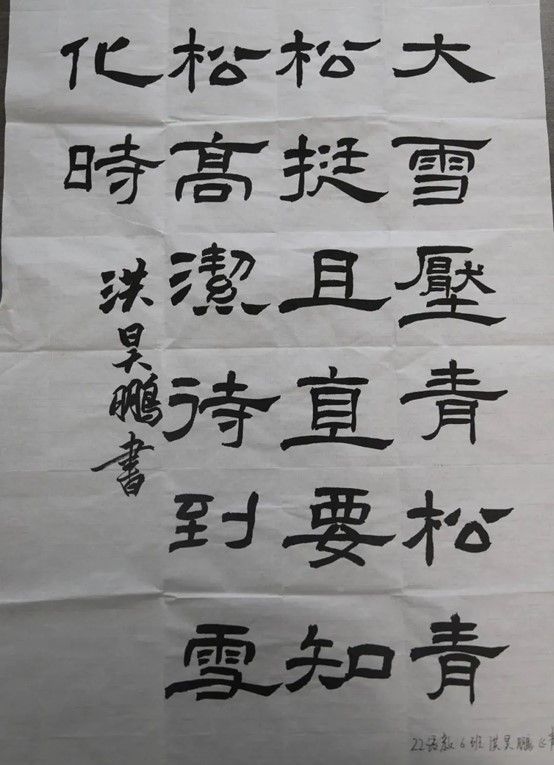 大雪壓青松青
松挺且直要知
松高潔待到雪
化時
洪昊鵬書
22 教6班 洪昊鹏